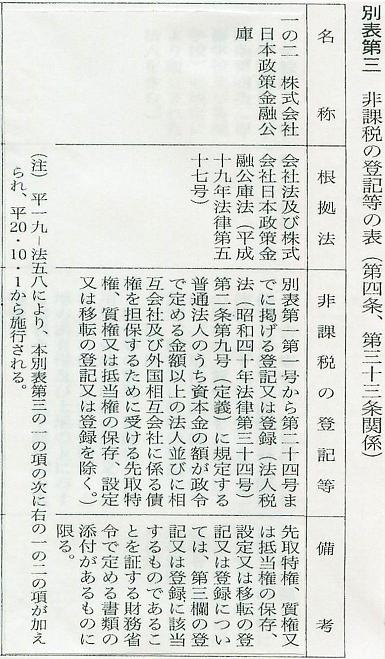 別表第三　非課税の登記等の表（第四条、第三十三条関係）
名称
根拠法
非課税の登記等
備考
一の二　株式会社
日本政策金融公
庫
会社法及び株式
会社日本政策金
融公庫法（平成
十九年法律第五
十七号）
別表第一第一号から第二十四号ま
でに掲げる登記又は登録（法人税
法（昭和四十年法律第三十四号）
第二条第九号（定義）に規定する
普通法人のうち資本金の額が政令
で定める金額以上の法人並びに相
互会社及び外国相互会社に係る債
権を担保するために受ける先取特
権、質権又は抵当権の保存、設定
又は移転の登記又は登録を除く。）
先取特権、質権又
は抵当権の保存、
設定又は移転の登
記又は登録につい
ては、第三欄の登
記又は登録に該当
するものであるこ
とを証する財務省
令で定める書類の
添付があるものに
限る。
（注）　平一九―法五八により、本別表第三の一の項の次に右の一の二の項が加え
られ、平20・10・1から施行される。